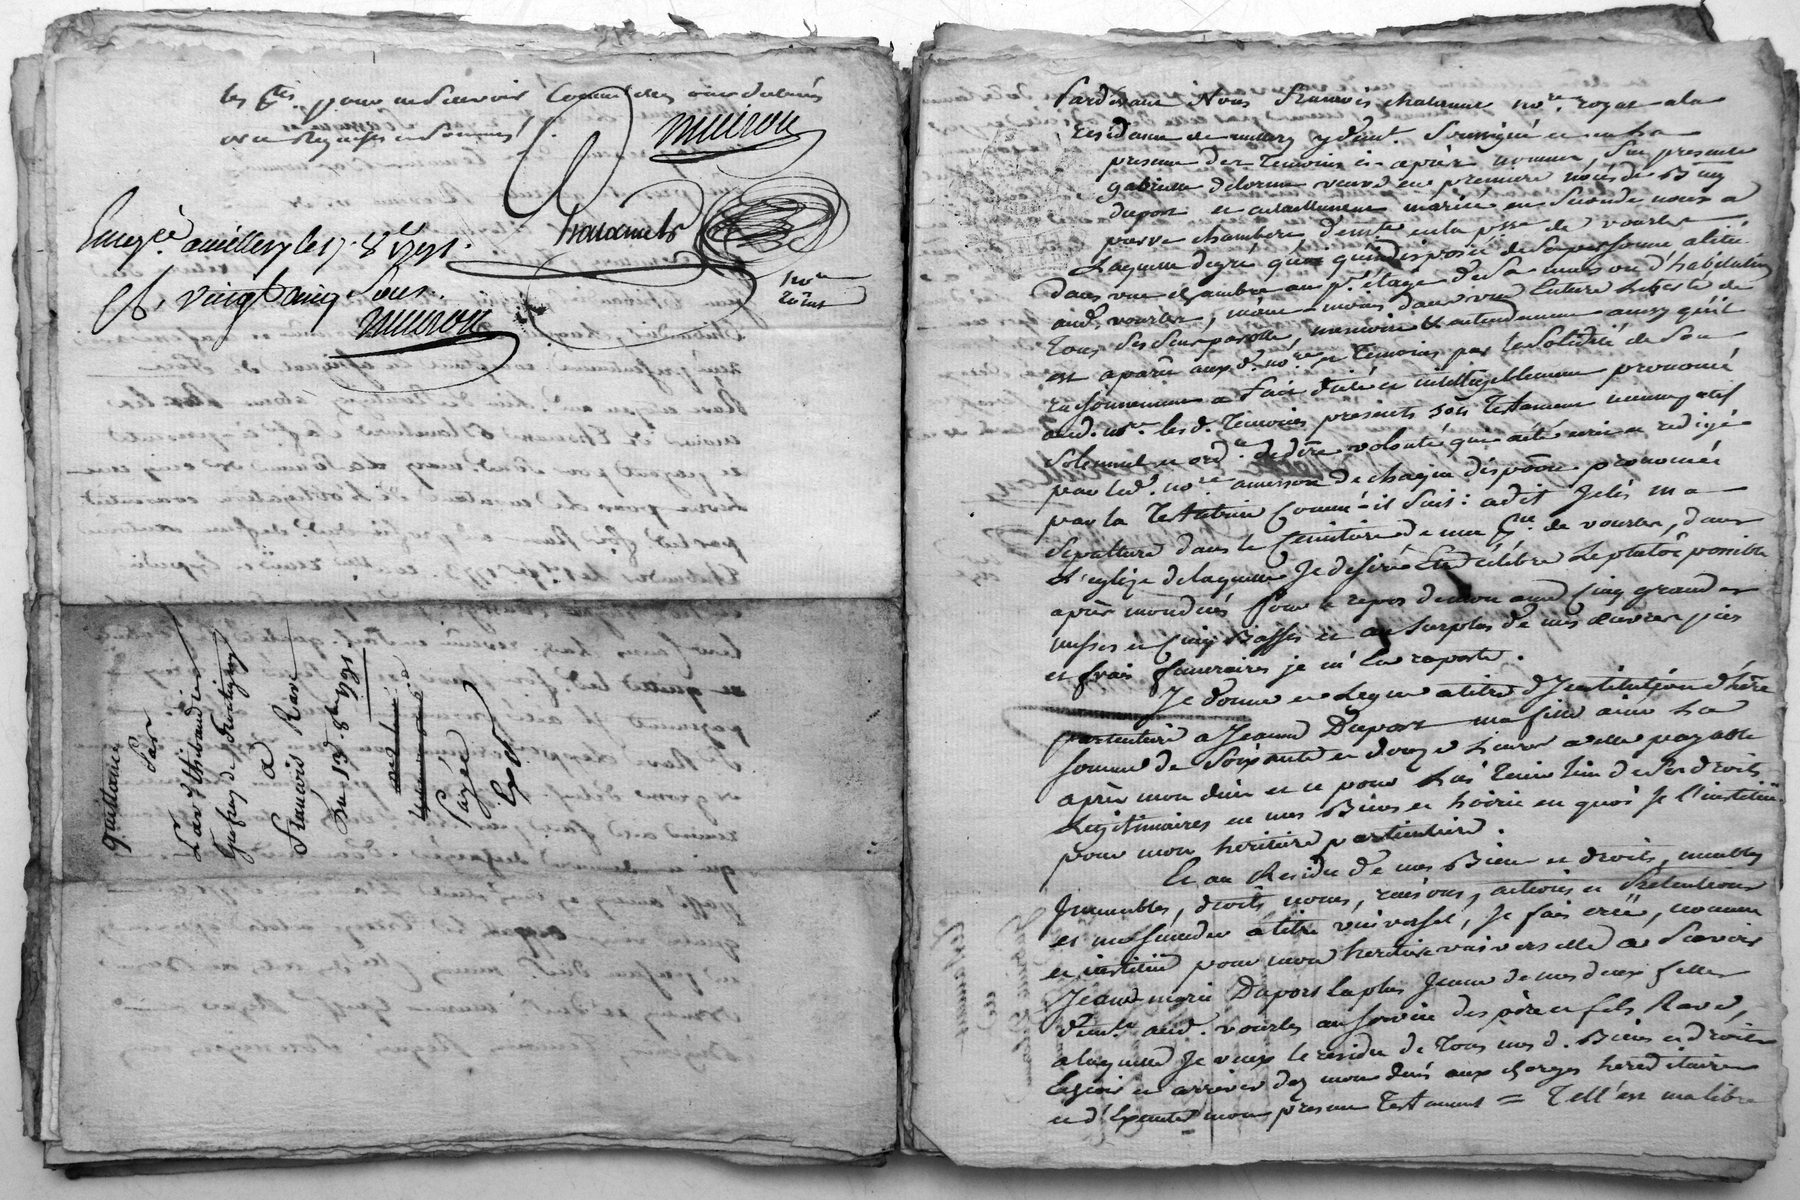 les pour ne sçavoir ecrire de ce
de ce Requis et sommés /.
muiron
not.re
Enreg.é a millery le 17. 8bre 1791.
R. vingt cinq sous.
muiron
quittance
Par
Les d. thibaudier
de Montigny
a
François Rave
Du 13 8bre 1791.
Payée
Pardevant Nous François no.re royal a la
residence de millery y dem.t soussigné et en la
presence des temoins ci-après nommés, fut presente
gabrielle delorme veuve en premiere noces de
dupont et actuellement mariée en seconde noces a
pierre chambere dem.te en la p.sse de vourles
Laquelle de gré quoi qu'indisposée de sa personne alitée
dans une chambre au p.er étage de sa maison d'habitation
aud. vourles, neant-moins dans une entiere liberté de
tous ses sens parolle, memoire & entendement ainsy qu'il
est aparu aud. no.re et temoins par la solidité de son
raisonnement a fait dicté et intelligiblement prononcé
aud. no.re les d. temoins presents son testament nuncupatif
solemnel et ord.e de d.re volonté qui a été écrit et redigé
par led. no.re a mesure de chaque dispôon prononcée
par la Testatrice Comme-il suit: a dit J'elis ma
sepulture dans le Cimitière de me de vourles, dans
L'eglize de laquelle Je desire Etre célébré le plutôt possible
après mon decès pour le repos de mon ame Cinq grandes
messes et Cinq Basses et au surplus de mes œuvres pies
et frais funeraires je m'en raporte.
Je donne et Legue a titre d'Institution d'hére
particulière a Jeanne Dupont ma fille ainée La
somme de soixante et douze livres a elle payable
après mon decès et ce pour lui tenir lieu de ses droits
Legitimaires en mes Biens et hoirie en quoi Je l'institue
pour mon heritiere particulière.
Et au Residu de mes Biens et droits, meubles
Immeubles, droits noms, raisons, actions et Pretentions
et a titre universel, Je fais créé, nomme
et institue pour mon heritiere universelle a sçavoir
Jeanne marie Dupont la plus Jeune de mes deux filles
dem.te aud. vourles au service des père et fils Rave,
a laquelle Je veux le residu de tous mes d. Biens et droits
et arriver dez mon decès aux charges hereditaires
et d'Executer mon present Testament = Tell' est ma libre